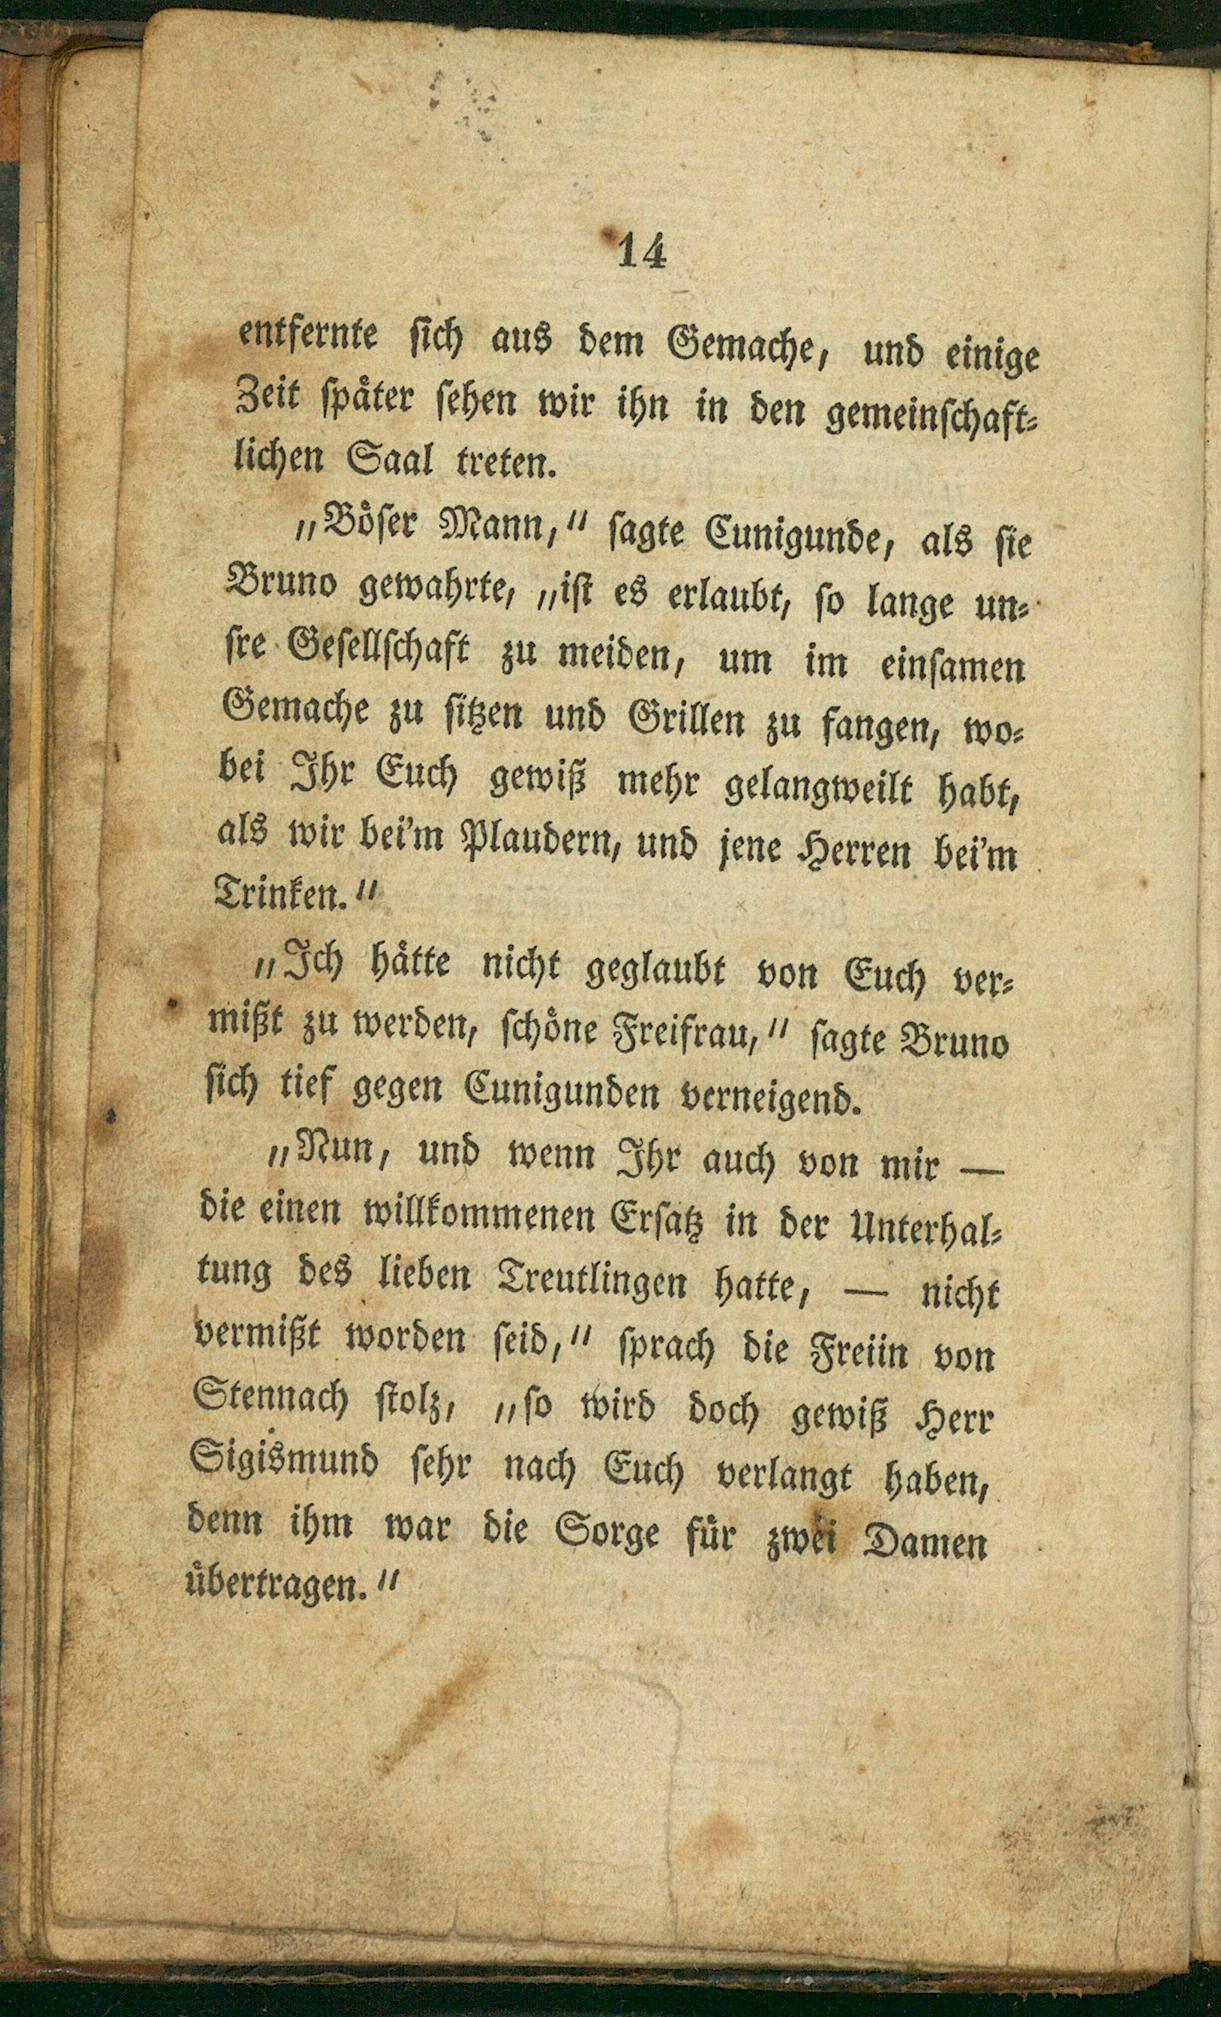 14
entfernte sich aus dem Gemache, und einige
Zeit später sehen wir ihn in den gemeinschaft-
lichen Saal treten.
„Böser Mann,“ sagte Cunigunde, als sie
Bruno gewahrte, „ist es erlaubt, so lange un-
sre Gesellschaft zu meiden, um im einsamen
Gemache zu sitzen und Grillen zu fangen, wo-
bei Ihr Euch gewiß mehr gelangweilt habt,
als wir bei'm Plaudern, und jene Herren bei'm
Trinken.“
„Ich hätte nicht geglaubt von Euch ver-
mißt zu werden, schöne Freifrau,“ sagte Bruno
sich tief gegen Cunigunden verneigend.
„Nun, und wenn Ihr auch von mir —
die einen willkommenen Ersatz in der Unterhal-
tung des lieben Treutlingen hatte, — nicht
vermißt worden seid,“ sprach die Freiin von
Stennach stolz, „so wird doch gewiß Herr
Sigismund sehr nach Euch verlangt haben,
denn ihm war die Sorge für zwei Damen
übertragen.“